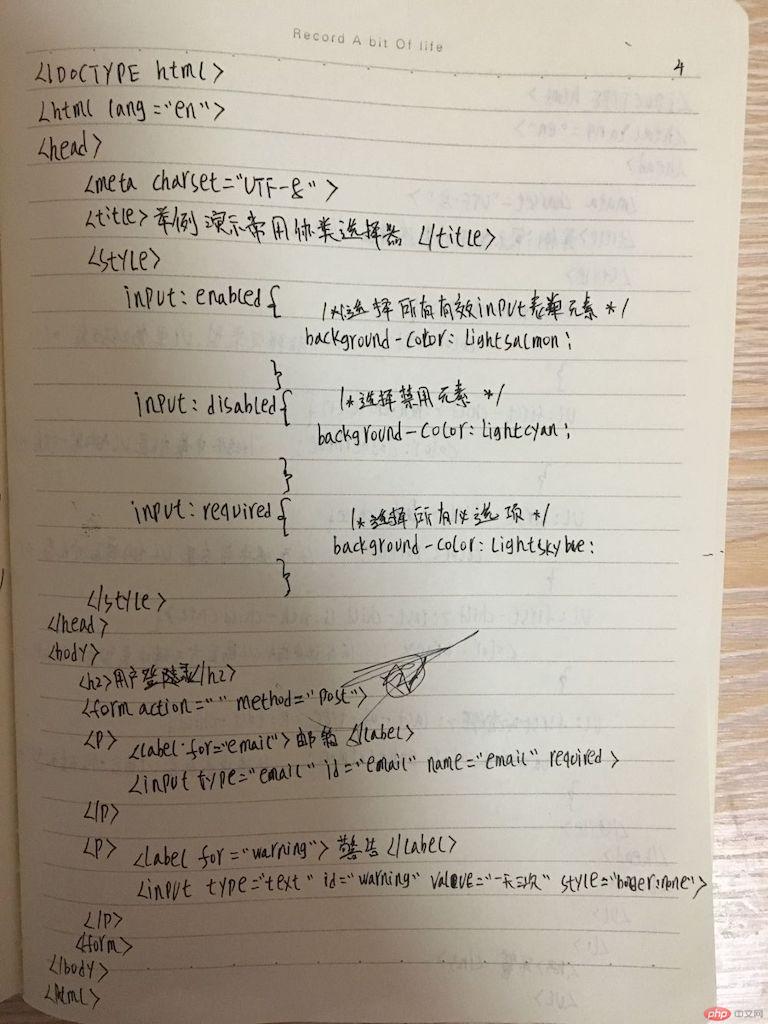 Record A bit Of life
4
<!DOCTYPE html>
<html lang="en">
<head>
<meta charset="UTF-8">
<title>举例演示常用伪类选择器</title>
<style>
input:enabled{ /*选择所有有效input表单元素*/
background-color:lightsalmon;
}
input:disabled{ /*选择禁用元素*/
background-color:lightcyan;
}
input:required{ /*选择所有必选项*/
background-color:lightskyblue;
}
</style>
</head>
<body>
<h2>用户登陆</h2>
<form action="" method="post">
<p> <label for="email">邮箱</label>
<input type="email" id="email" name="email" required>
</p>
<p> <label for="warning">警告</label>
<input type="text" id="warning" value="一天三次" style="border:none">
</p>
<form>
</body>
</html>
php 中文网